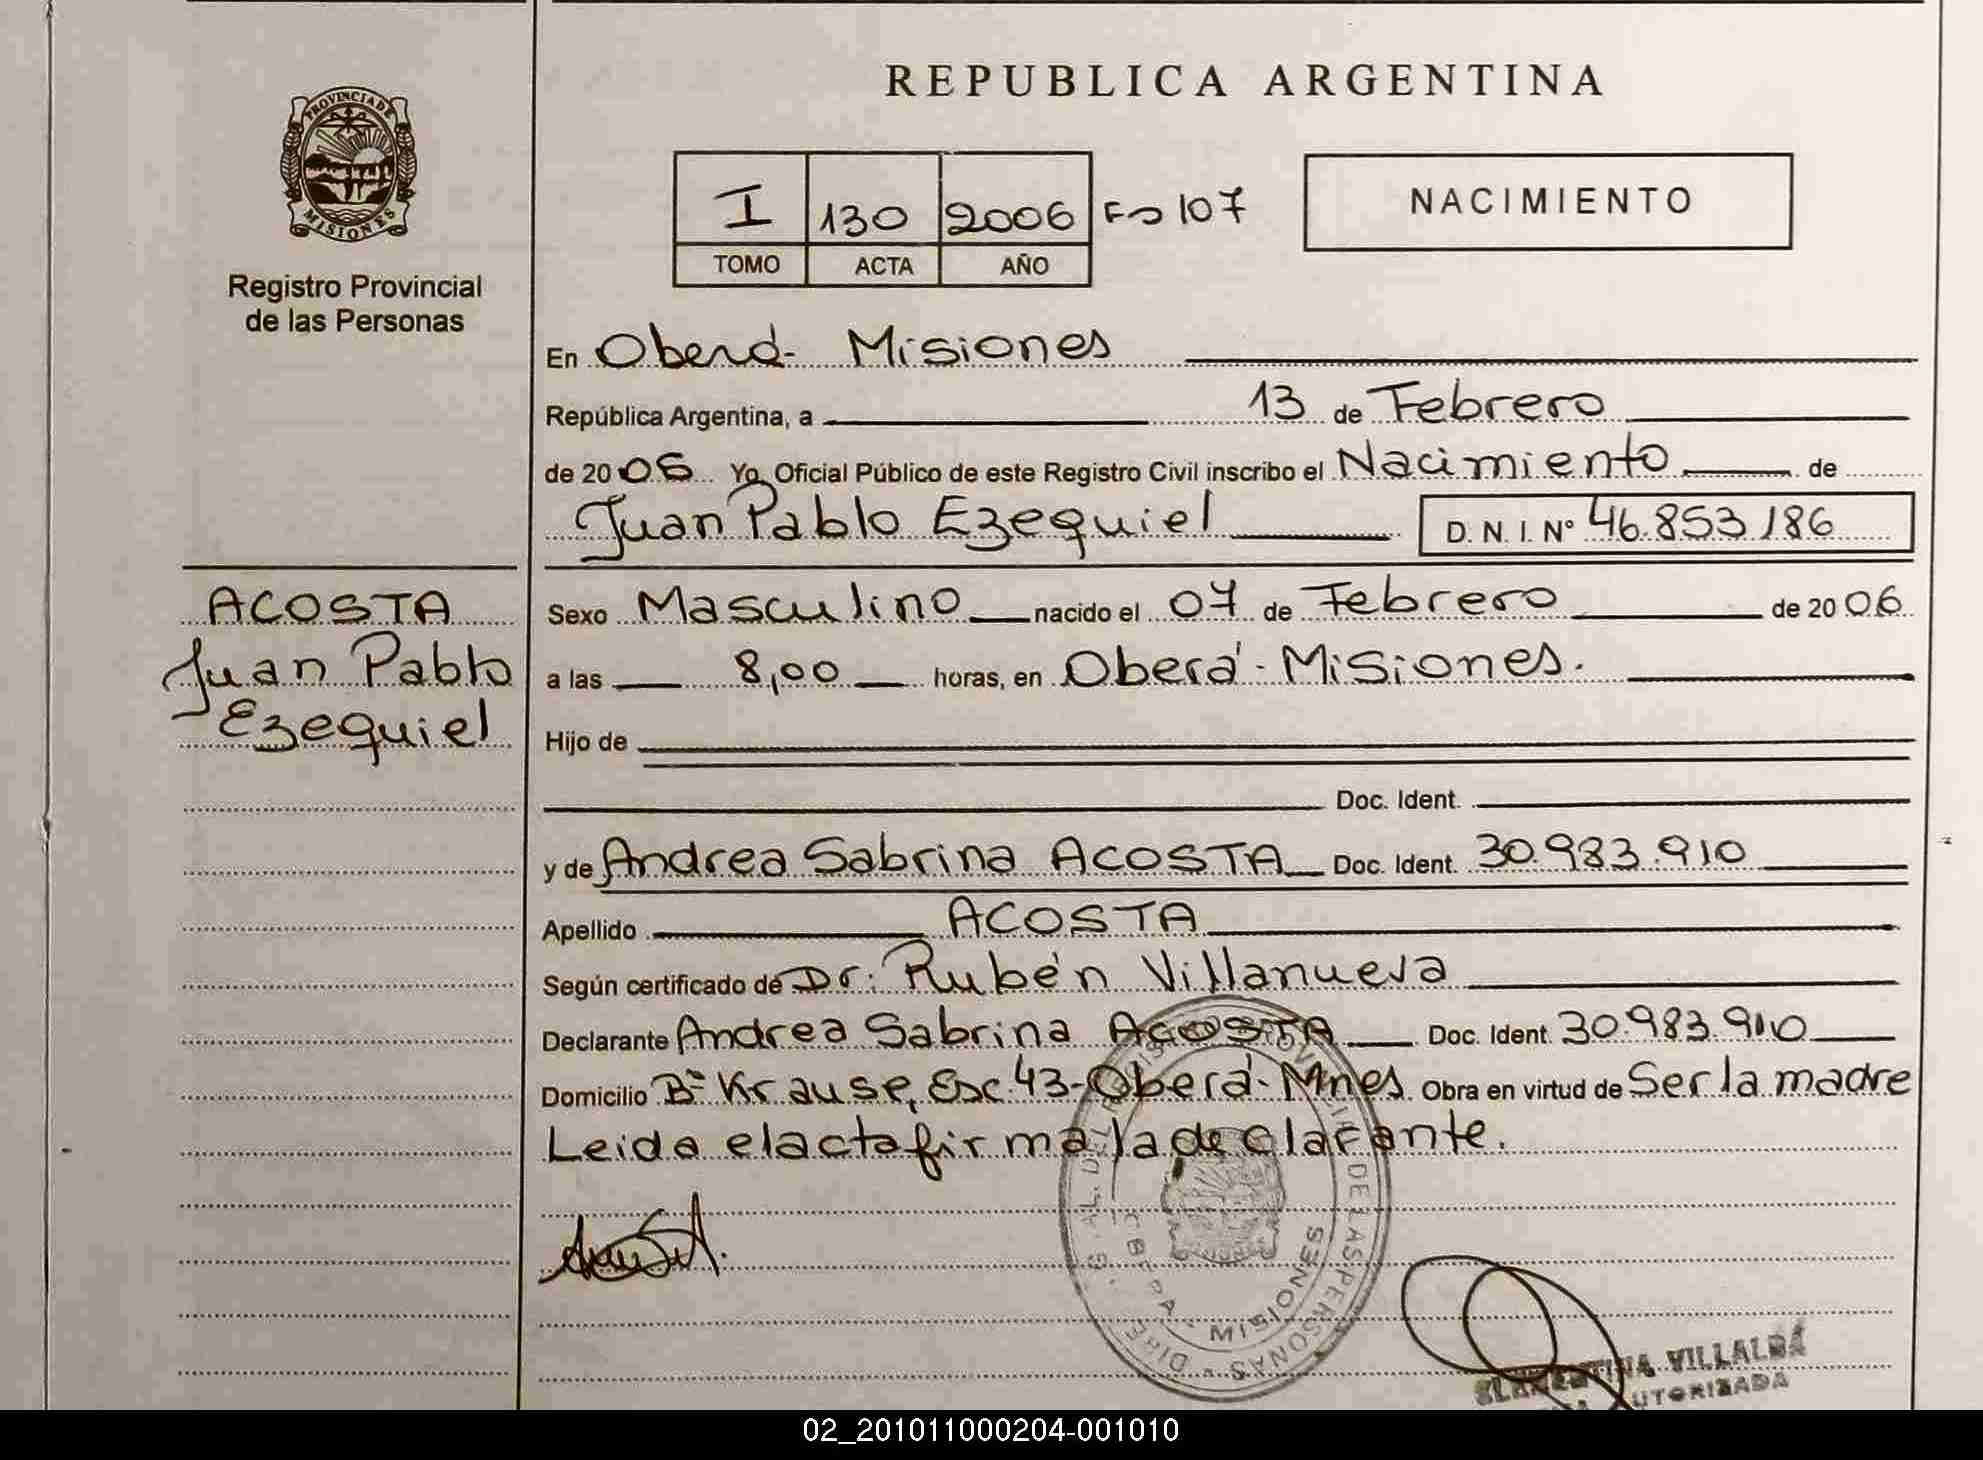 PROVINCIA DE
MISIONES
Registro Provincial
de las Personas
REPUBLICA ARGENTINA
I 130 2006 Fº 107
TOMO ACTA AÑO
NACIMIENTO
En Oberá- Misiones
República Argentina, a 13 de Febrero
de 20 06 Yo, Oficial Público de este Registro Civil inscribo el Nacimiento de
Juan Pablo Ezequiel D. N. I. Nº 46.853.186
ACOSTA
Juan Pablo
Ezequiel
Sexo Masculino nacido el 07 de Febrero de 20 06
a las 8,00 horas, en Oberá - Misiones.
Hijo de
Doc. Ident.
y de Andrea Sabrina ACOSTA Doc. Ident. 30.983.910
Apellido ACOSTA
Según certificado de Dr: Rubén Villanueva
Declarante Andrea Sabrina ACOSTA Doc. Ident. 30.983.910
Domicilio Bº Krause, Esc 43-Oberá- Mnes. Obra en virtud de Ser la madre
Leida el acta firma la declarante.
DE LAS PERSONAS
MISIONES
VILLALBA
AUTORIZADA
02_201011000204-001010